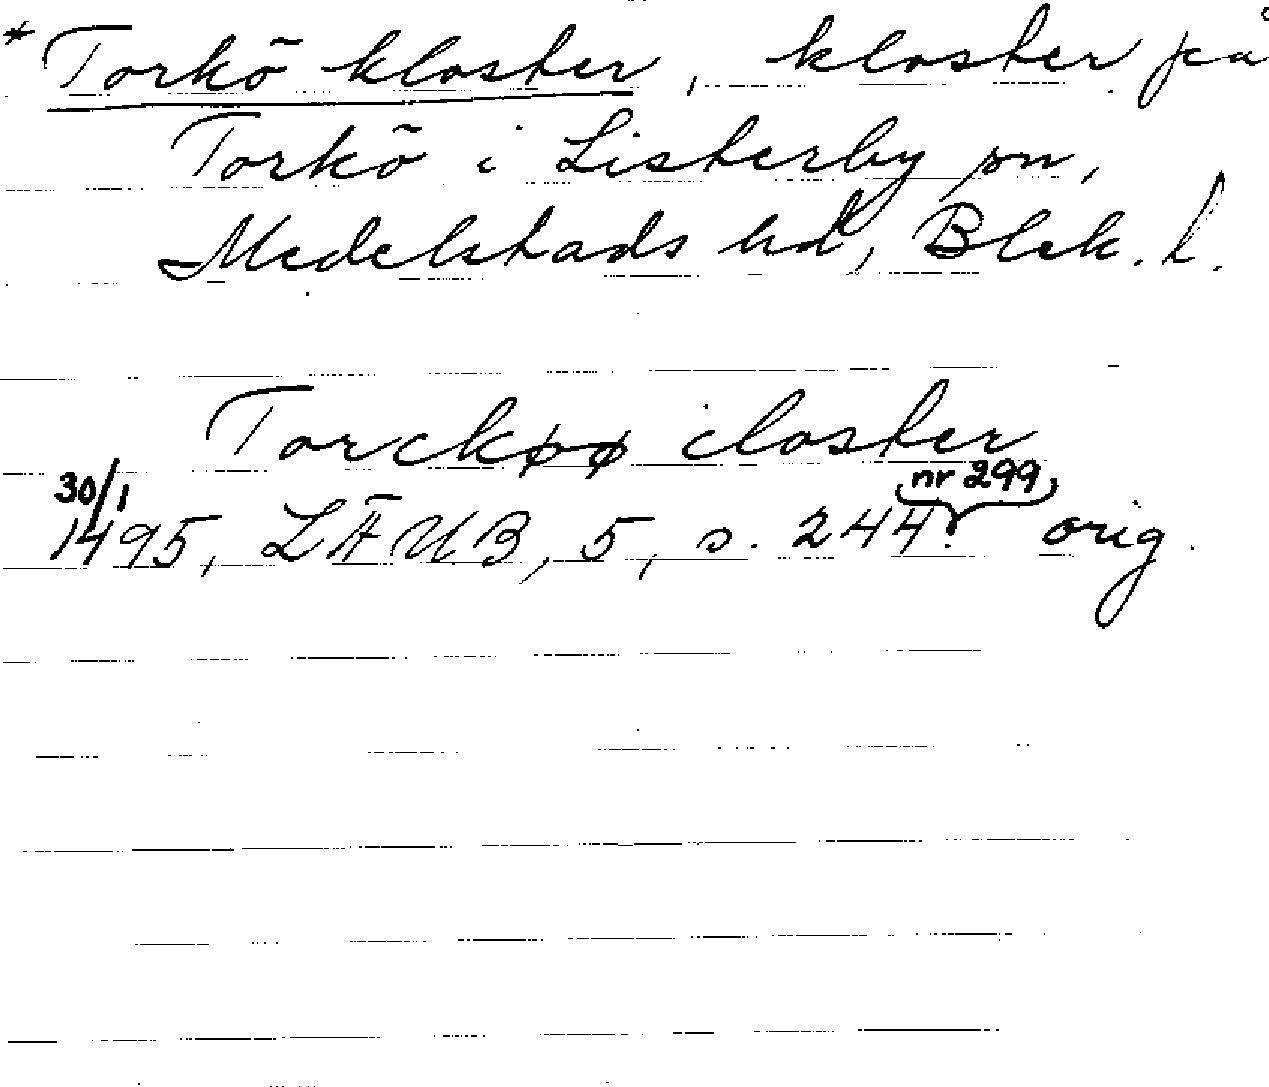 * Torkö kloster, kloster på
Torkö i Listerby sn,
Medelstads hd, Blek. l.
Torckøø closter
30/1 nr 299
1495, LÄUB, 5, s. 244. orig.